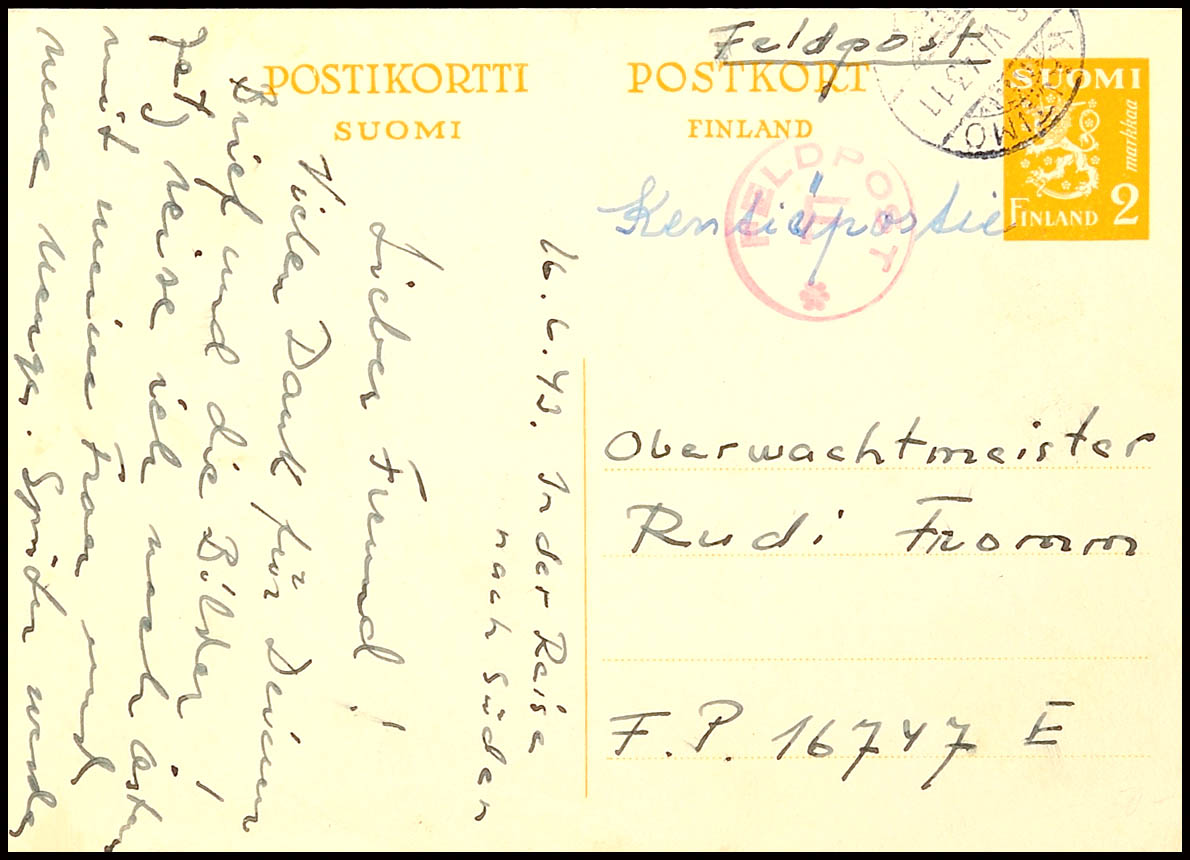 POSTIKORTTI
SUOMI
POSTKORT
FINLAND
Feldpost
SUOMI
markkaa
FINLAND 2
FELDPOST
Kenttäpostia
16.6.43. In der Reise
nach Süden
Lieber Freund!
Vielen Dank für Deinen
Brief und die Bilder!
Jetz reise ich nach
mit meine Frau und
Später
Oberwachtmeister
Rudi Fromm
F.P. 16747 E